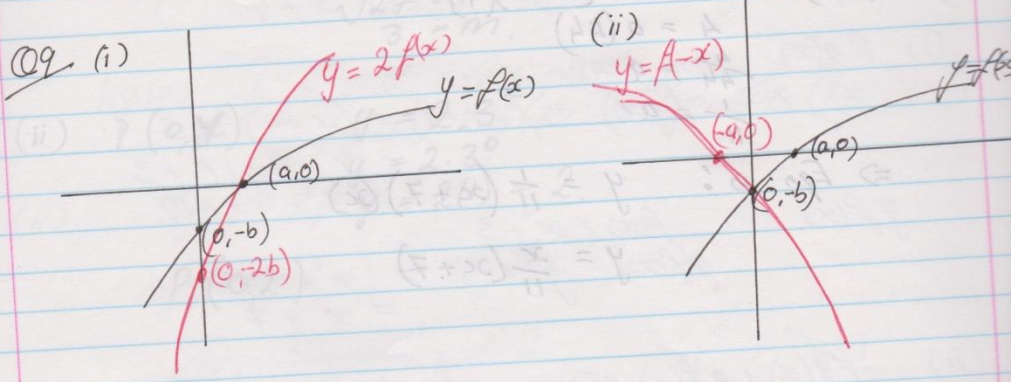 Q9 (i)
y = 2f(x)
y = f(x)
(a,0)
(0,-b)
(0,-2b)
(ii)
y = f(-x)
y = f(x
(-a,0)
(a,0)
(0,-b)